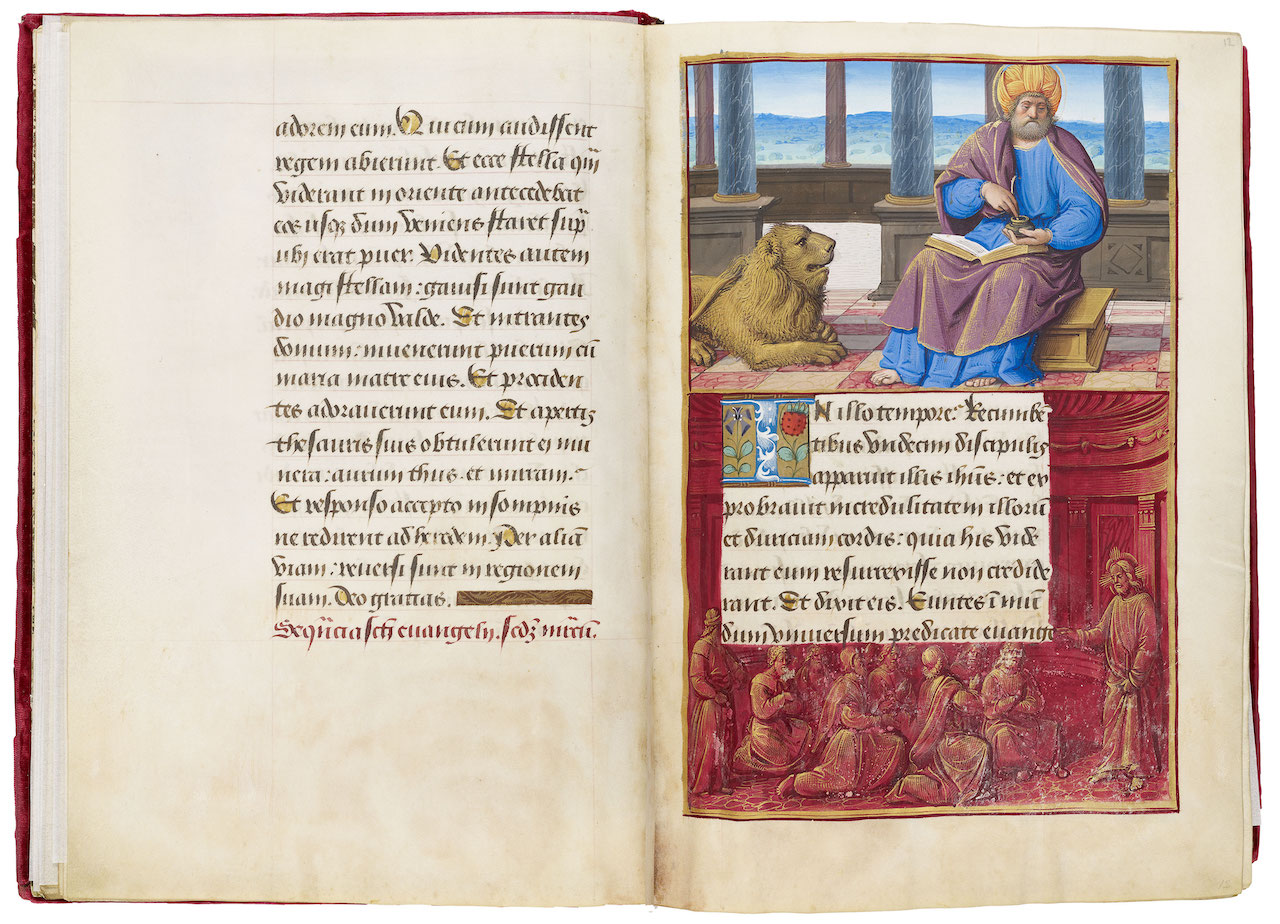 adorem eum. Qui cum audissent
regem abierunt. Et ecce stella quā
viderant in oriente antecedebat
eos usqz dum veniens staret sup̄
ubi erat puer. Videntes autem
magi stellam: gavisi sunt gau
dio magno valde. Et intrantes
domum: invenerunt puerum cū
maria matre eius. Et prociden
tes adoraverunt eum. Et apertis
thesauris suis obtulerunt ei mu
nera: aurum thus et mirram.
Et responso accepto in sompnis
ne redirent ad herodem. Per aliā
viam: reversi sunt in regionem
suam. Deo gratias.
Seqūcia scti euangelij. scdz mrcū.
12
IN illo tempore: Recumbē
tibus undecim discipulis
apparuit illis ihūs: et ex
probravit incredulitatem illorū
et duriciam cordis: quia his vide
rant eum resurrexisse non credide
rant. Et dixit eis. Euntes ī mū
dum universum predicate euange